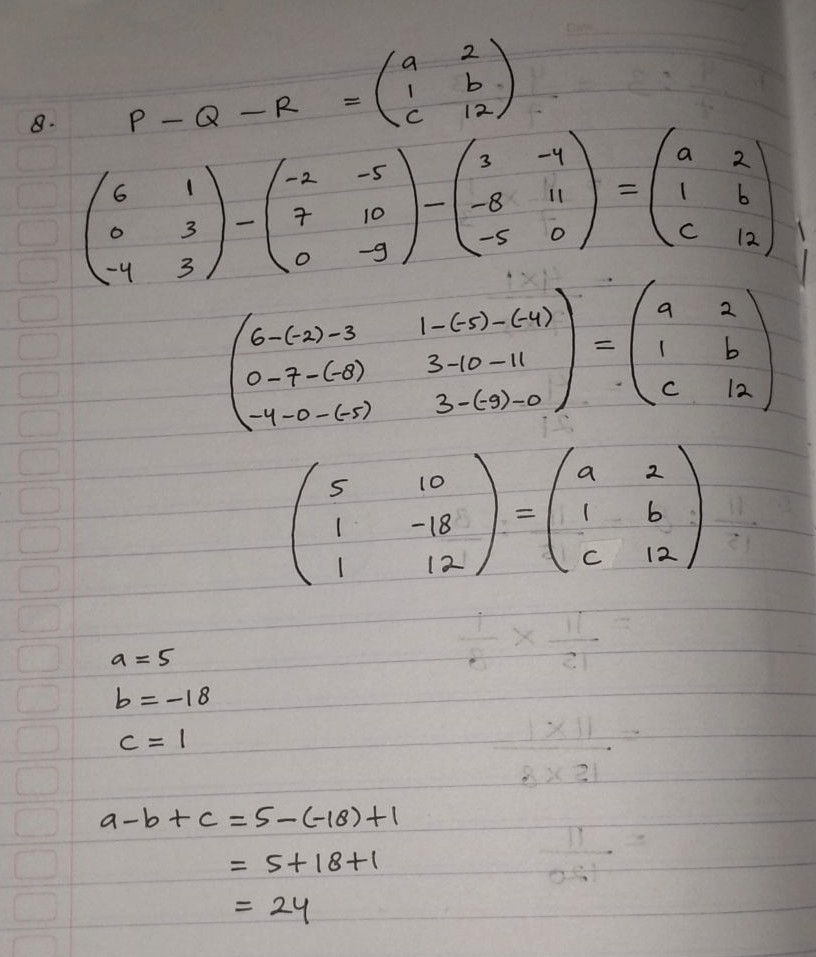 8. P - Q - R = (a 2
1 b
c 12)
(6 1
0 3
-4 3) - (-2 -5
7 10
0 -9) - (3 -4
-8 11
-5 0) = (a 2
1 b
c 12)
(6-(-2)-3 1-(-5)-(-4)
0-7-(-8) 3-10-11
-4-0-(-5) 3-(-9)-0) = (a 2
1 b
c 12)
(5 10
1 -18
1 12) = (a 2
1 b
c 12)
a = 5
b = -18
c = 1
a-b+c = 5-(-18)+1
= 5+18+1
= 24